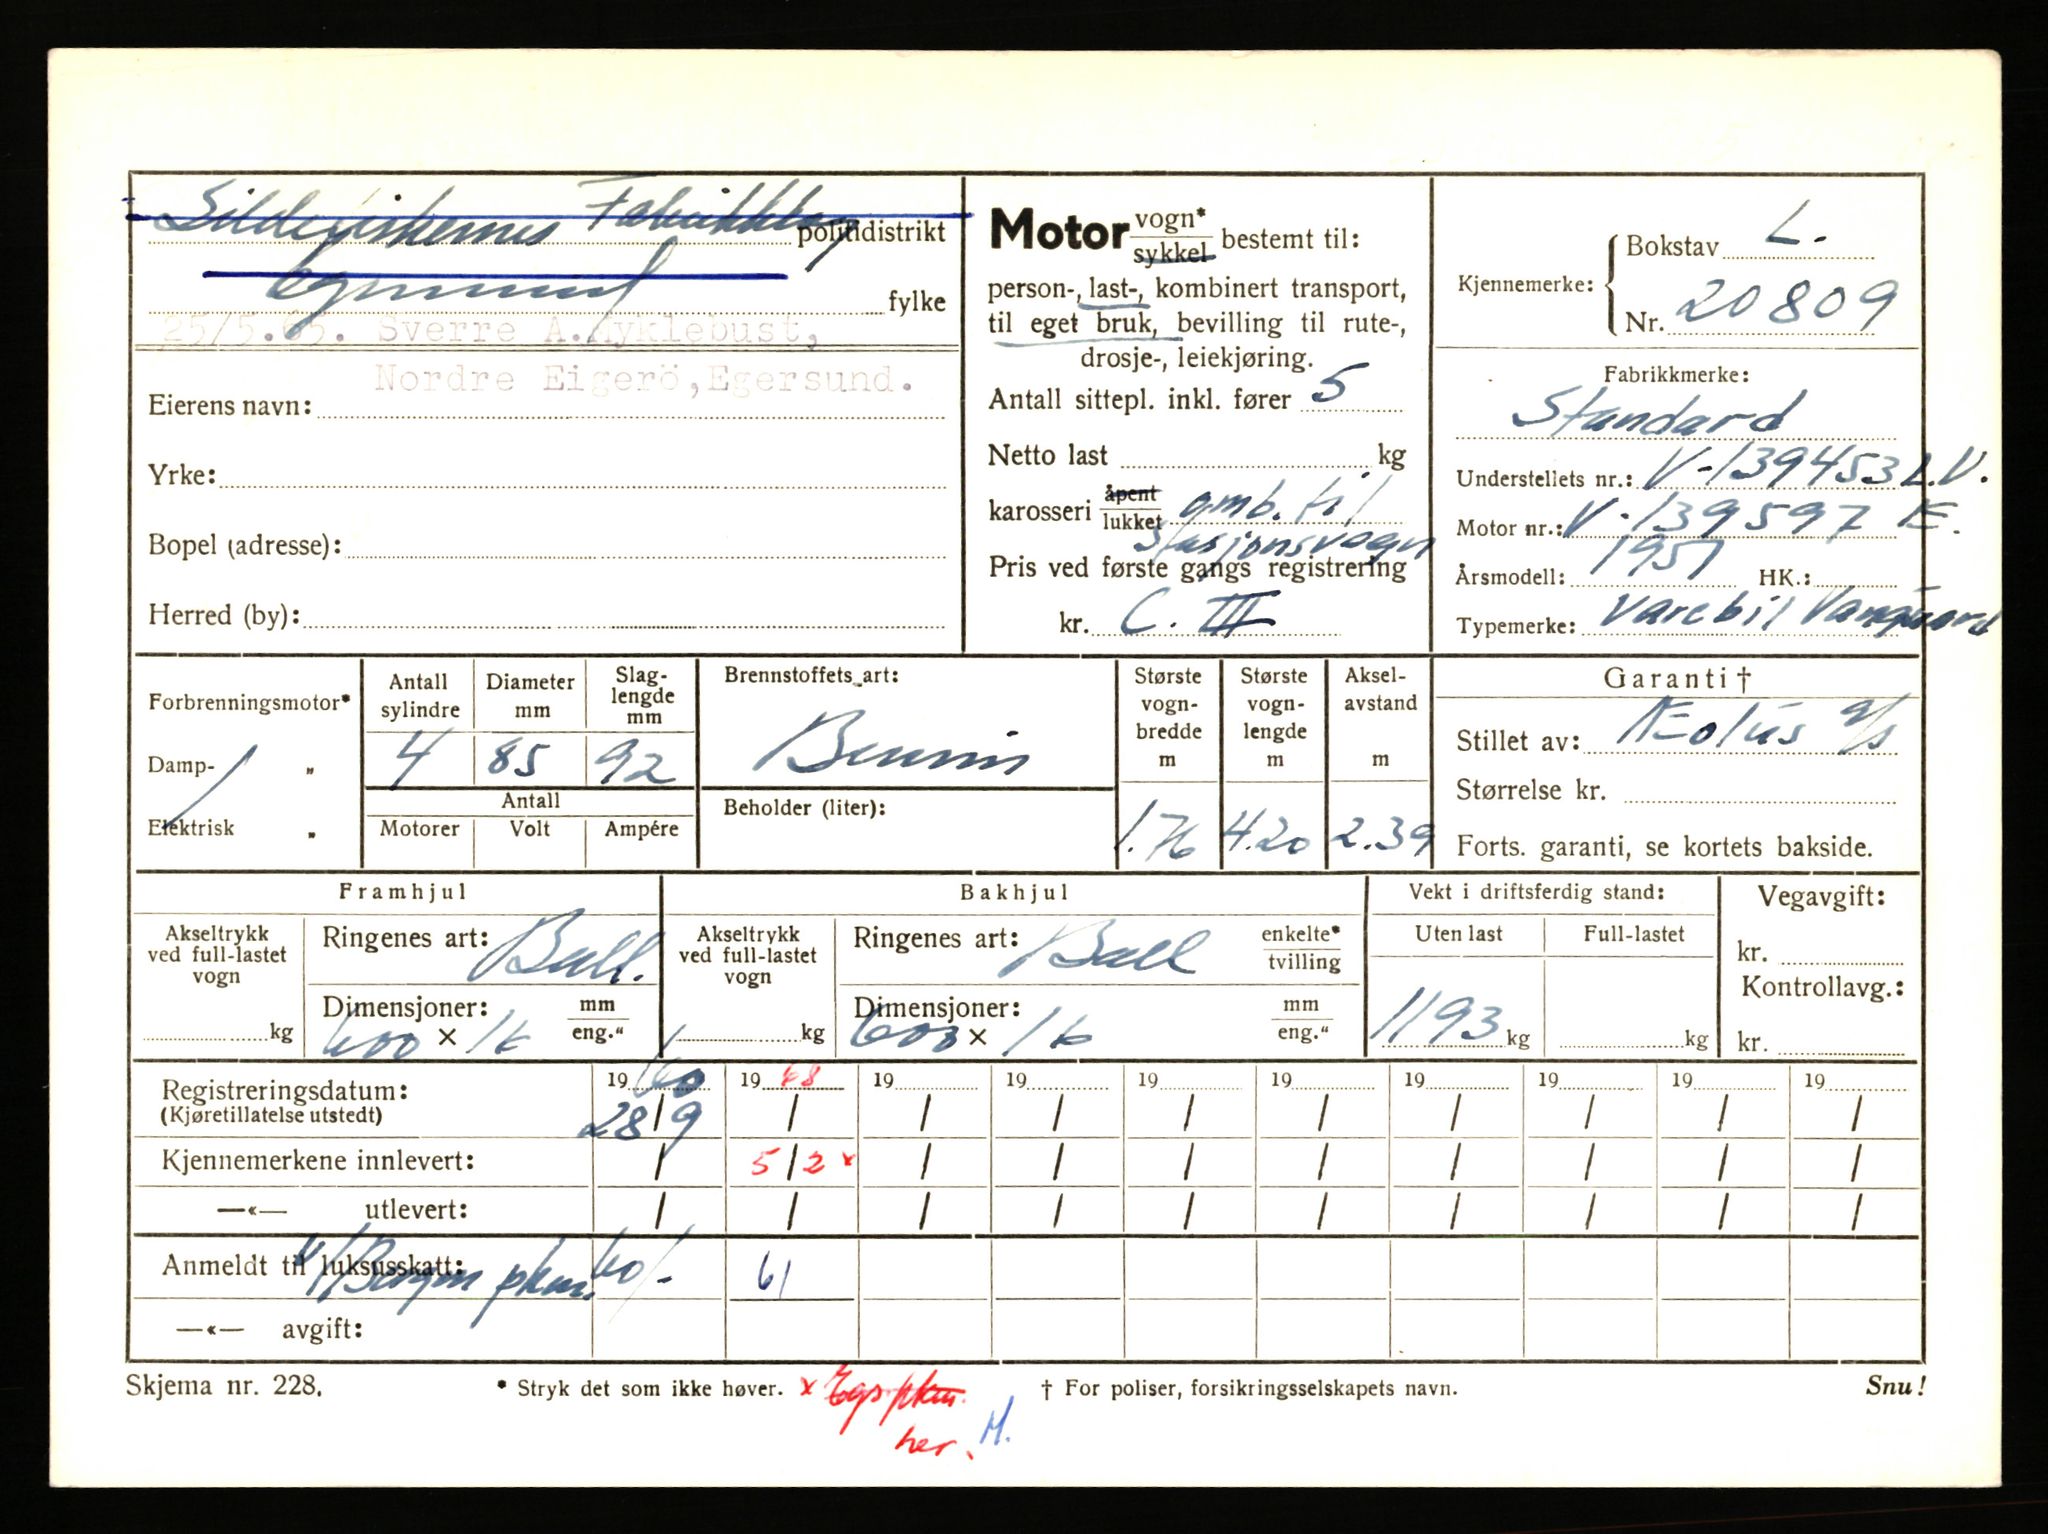 Sildefiskernes Fabrikklag politidistrikt
Egersund fylke
25/5.65. Sverre A.Myklebust,
Nordre Eigerö, Egersund.
Eierens navn:
Yrke:
Bopel (adresse):
Herred (by):
Motor vogn* sykkel bestemt til:
person-, last-, kombinert transport,
til eget bruk, bevilling til rute-,
drosje-, leiekjøring.
Antall sittepl. inkl. fører 5
Netto last kg
karosseri åpent lukket omb. til
stasjonsvogn
Pris ved første gangs registrering
kr. C. III
Kjennemerke: Bokstav L.
Nr. 20809
Fabrikkmerke:
Standard
Understellets nr.: V-139453 L.V.
Motor nr.: V-139597 E.
Årsmodell: 1951 HK.:
Typemerke: Varebil Vanguard
Forbrenningsmotor*
Damp- „
Elektrisk „
Antall sylindre Diameter mm Slag-lengde mm
4 85 92
Antall
Motorer Volt Ampére
Brennstoffets art:
Bensin
Beholder (liter):
Største vogn-bredde m Største vogn-lengde m Aksel-avstand m
1.76 4.20 2.39
Garanti †
Stillet av: Æolus a/s
Størrelse kr.
Forts. garanti, se kortets bakside.
Framhjul
Akseltrykk ved full-lastet vogn
kg
Ringenes art: Ball.
Dimensjoner: mm eng.“
600 × 16
Bakhjul
Akseltrykk ved full-lastet vogn
kg
Ringenes art: Ball enkelte* tvilling
Dimensjoner: mm eng.“
600 × 16
Vekt i driftsferdig stand:
Uten last Full-lastet
1193 kg kg
Vegavgift:
kr.
Kontrollavg.:
kr.
Registreringsdatum: 19 60 19 68 19 19 19 19 19 19 19 19
(Kjøretillatelse utstedt) 28/9 / / / / / / / / /
Kjennemerkene innlevert: / 5/2 x / / / / / / / /
—«— utlevert: / / / / / / / / / /
Anmeldt til luksusskatt: 60/- 61
v/Bergen pkm.
—«— avgift:
Skjema nr. 228.
* Stryk det som ikke høver.
x Egs pkm.
her.
H.
† For poliser, forsikringsselskapets navn.
Snu!